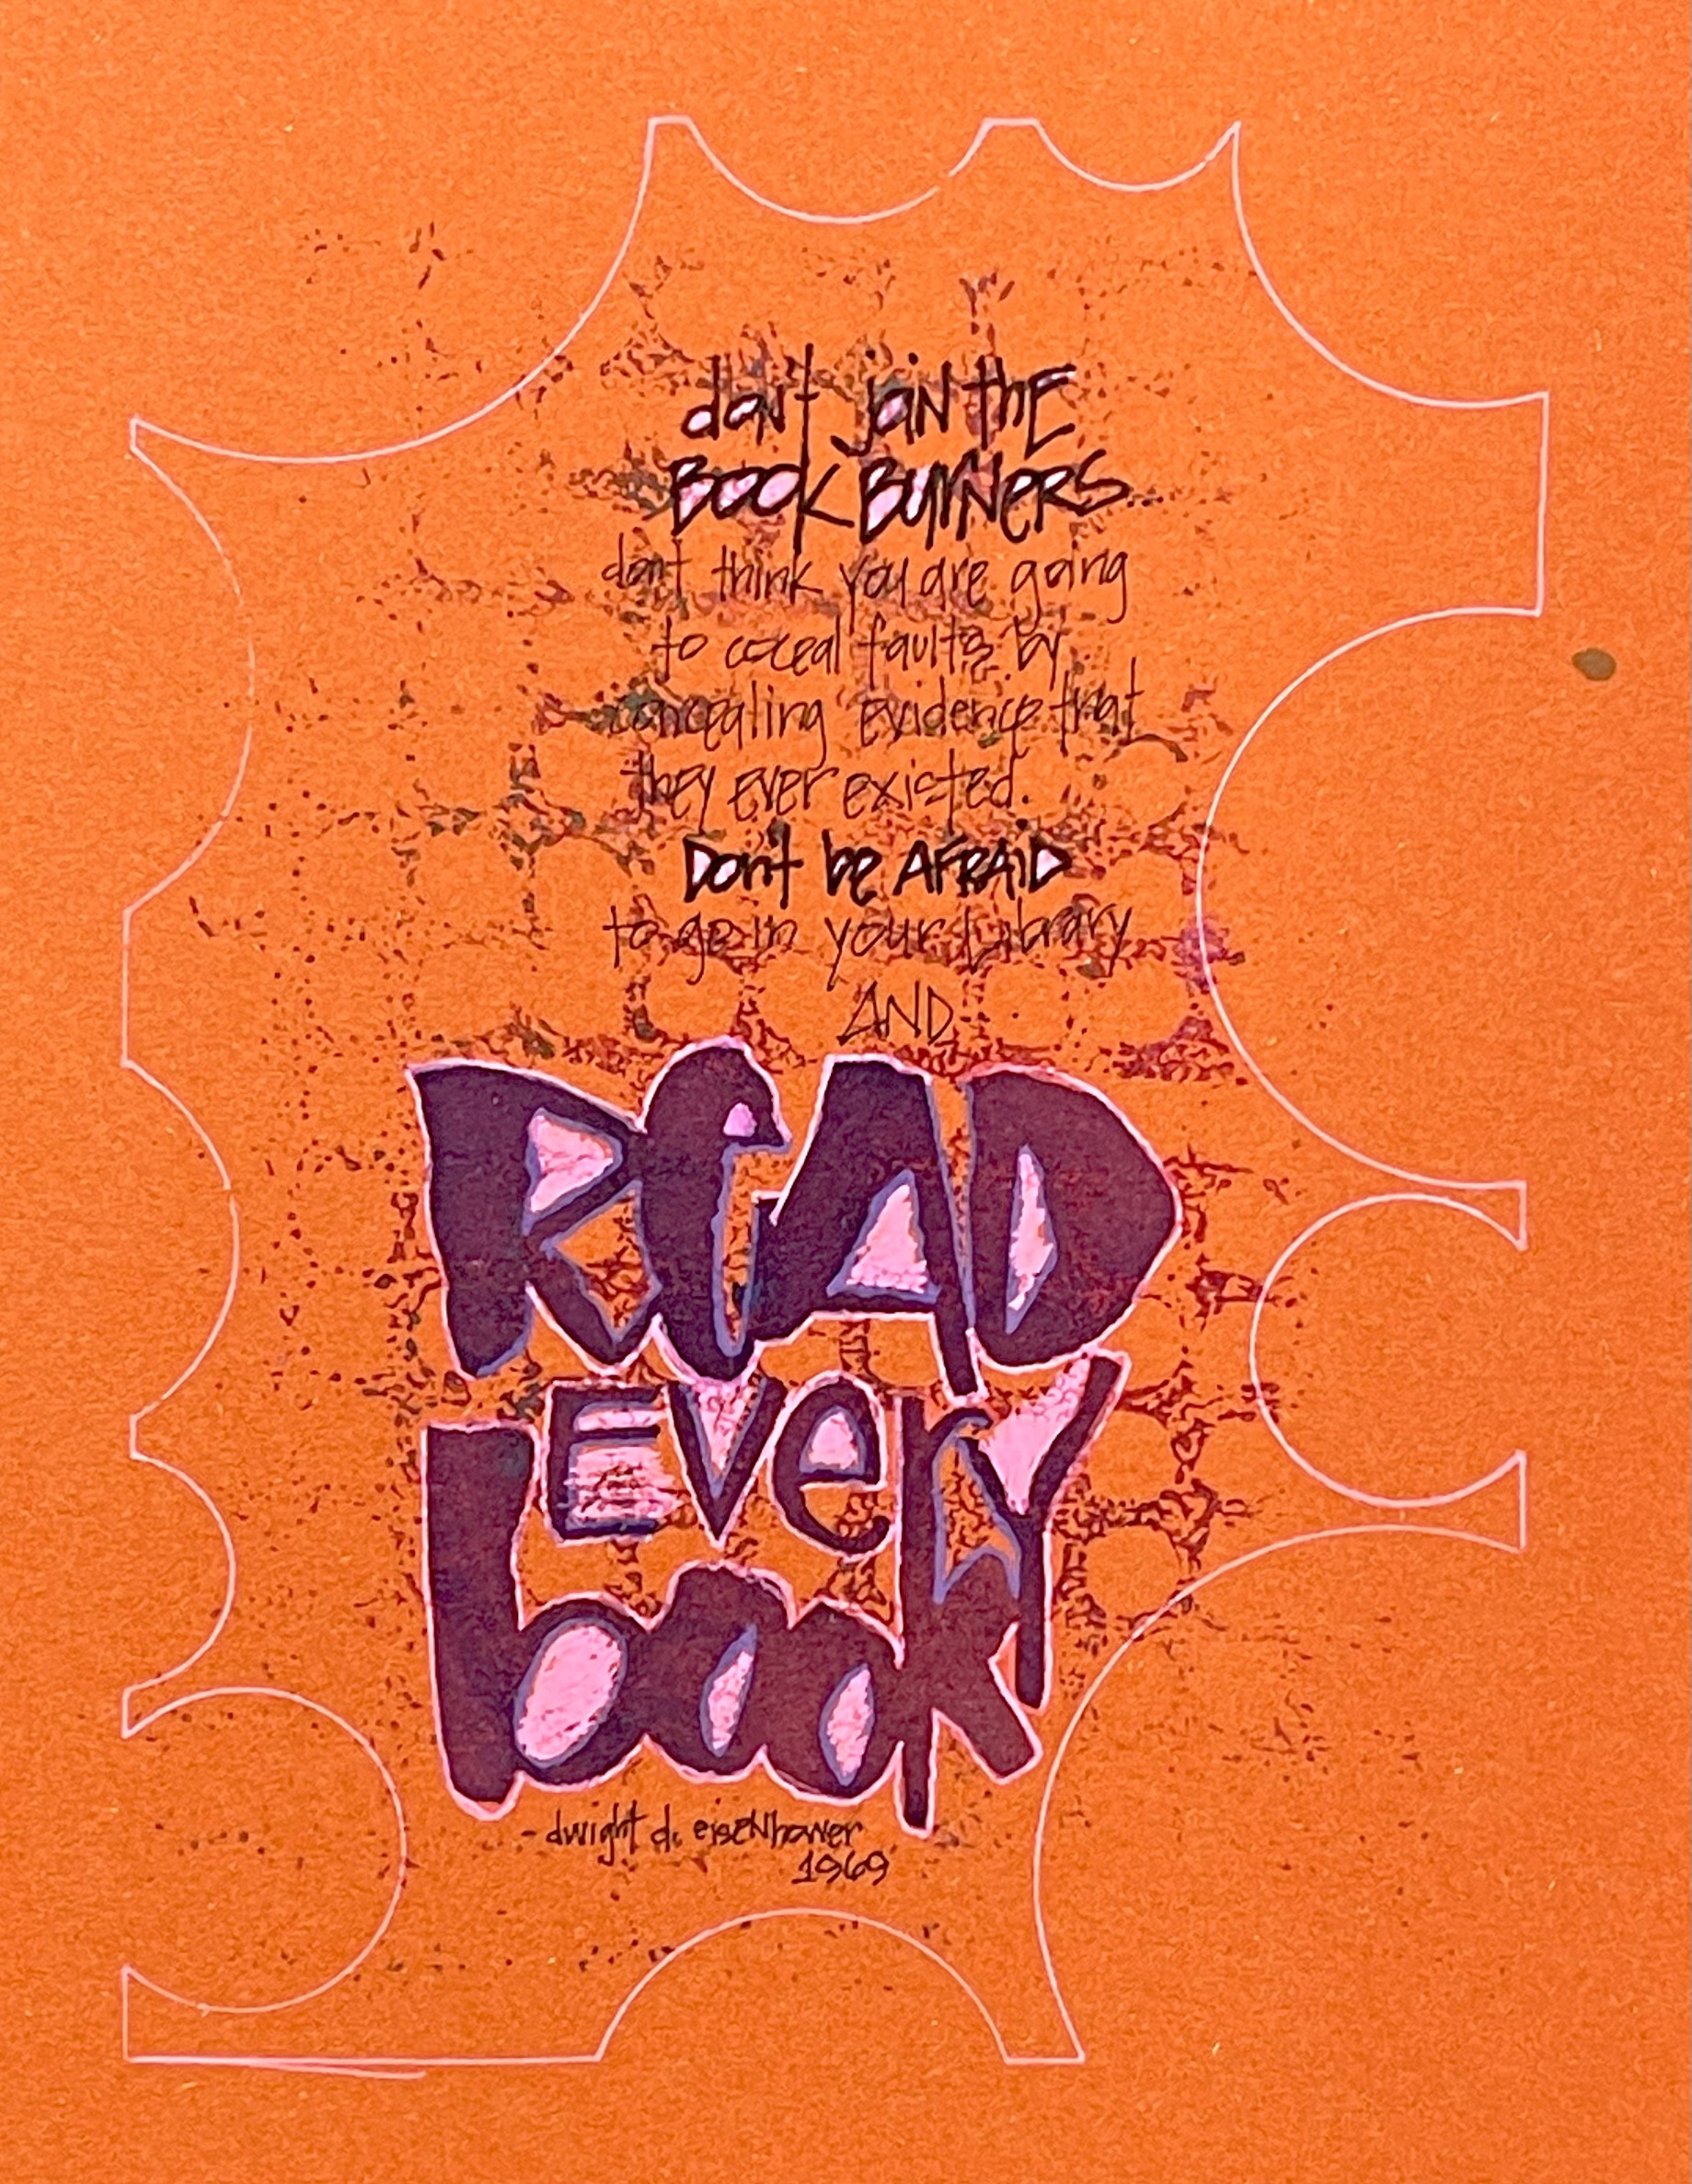 don't join the
Book Burners...
don't think you are going
to coceal faults by
concealing evidence that
they ever existed.
Don't be AFRAiD
to go in your Library
AND
ReAD
Every
book
- dwight d. eisenhower
1969